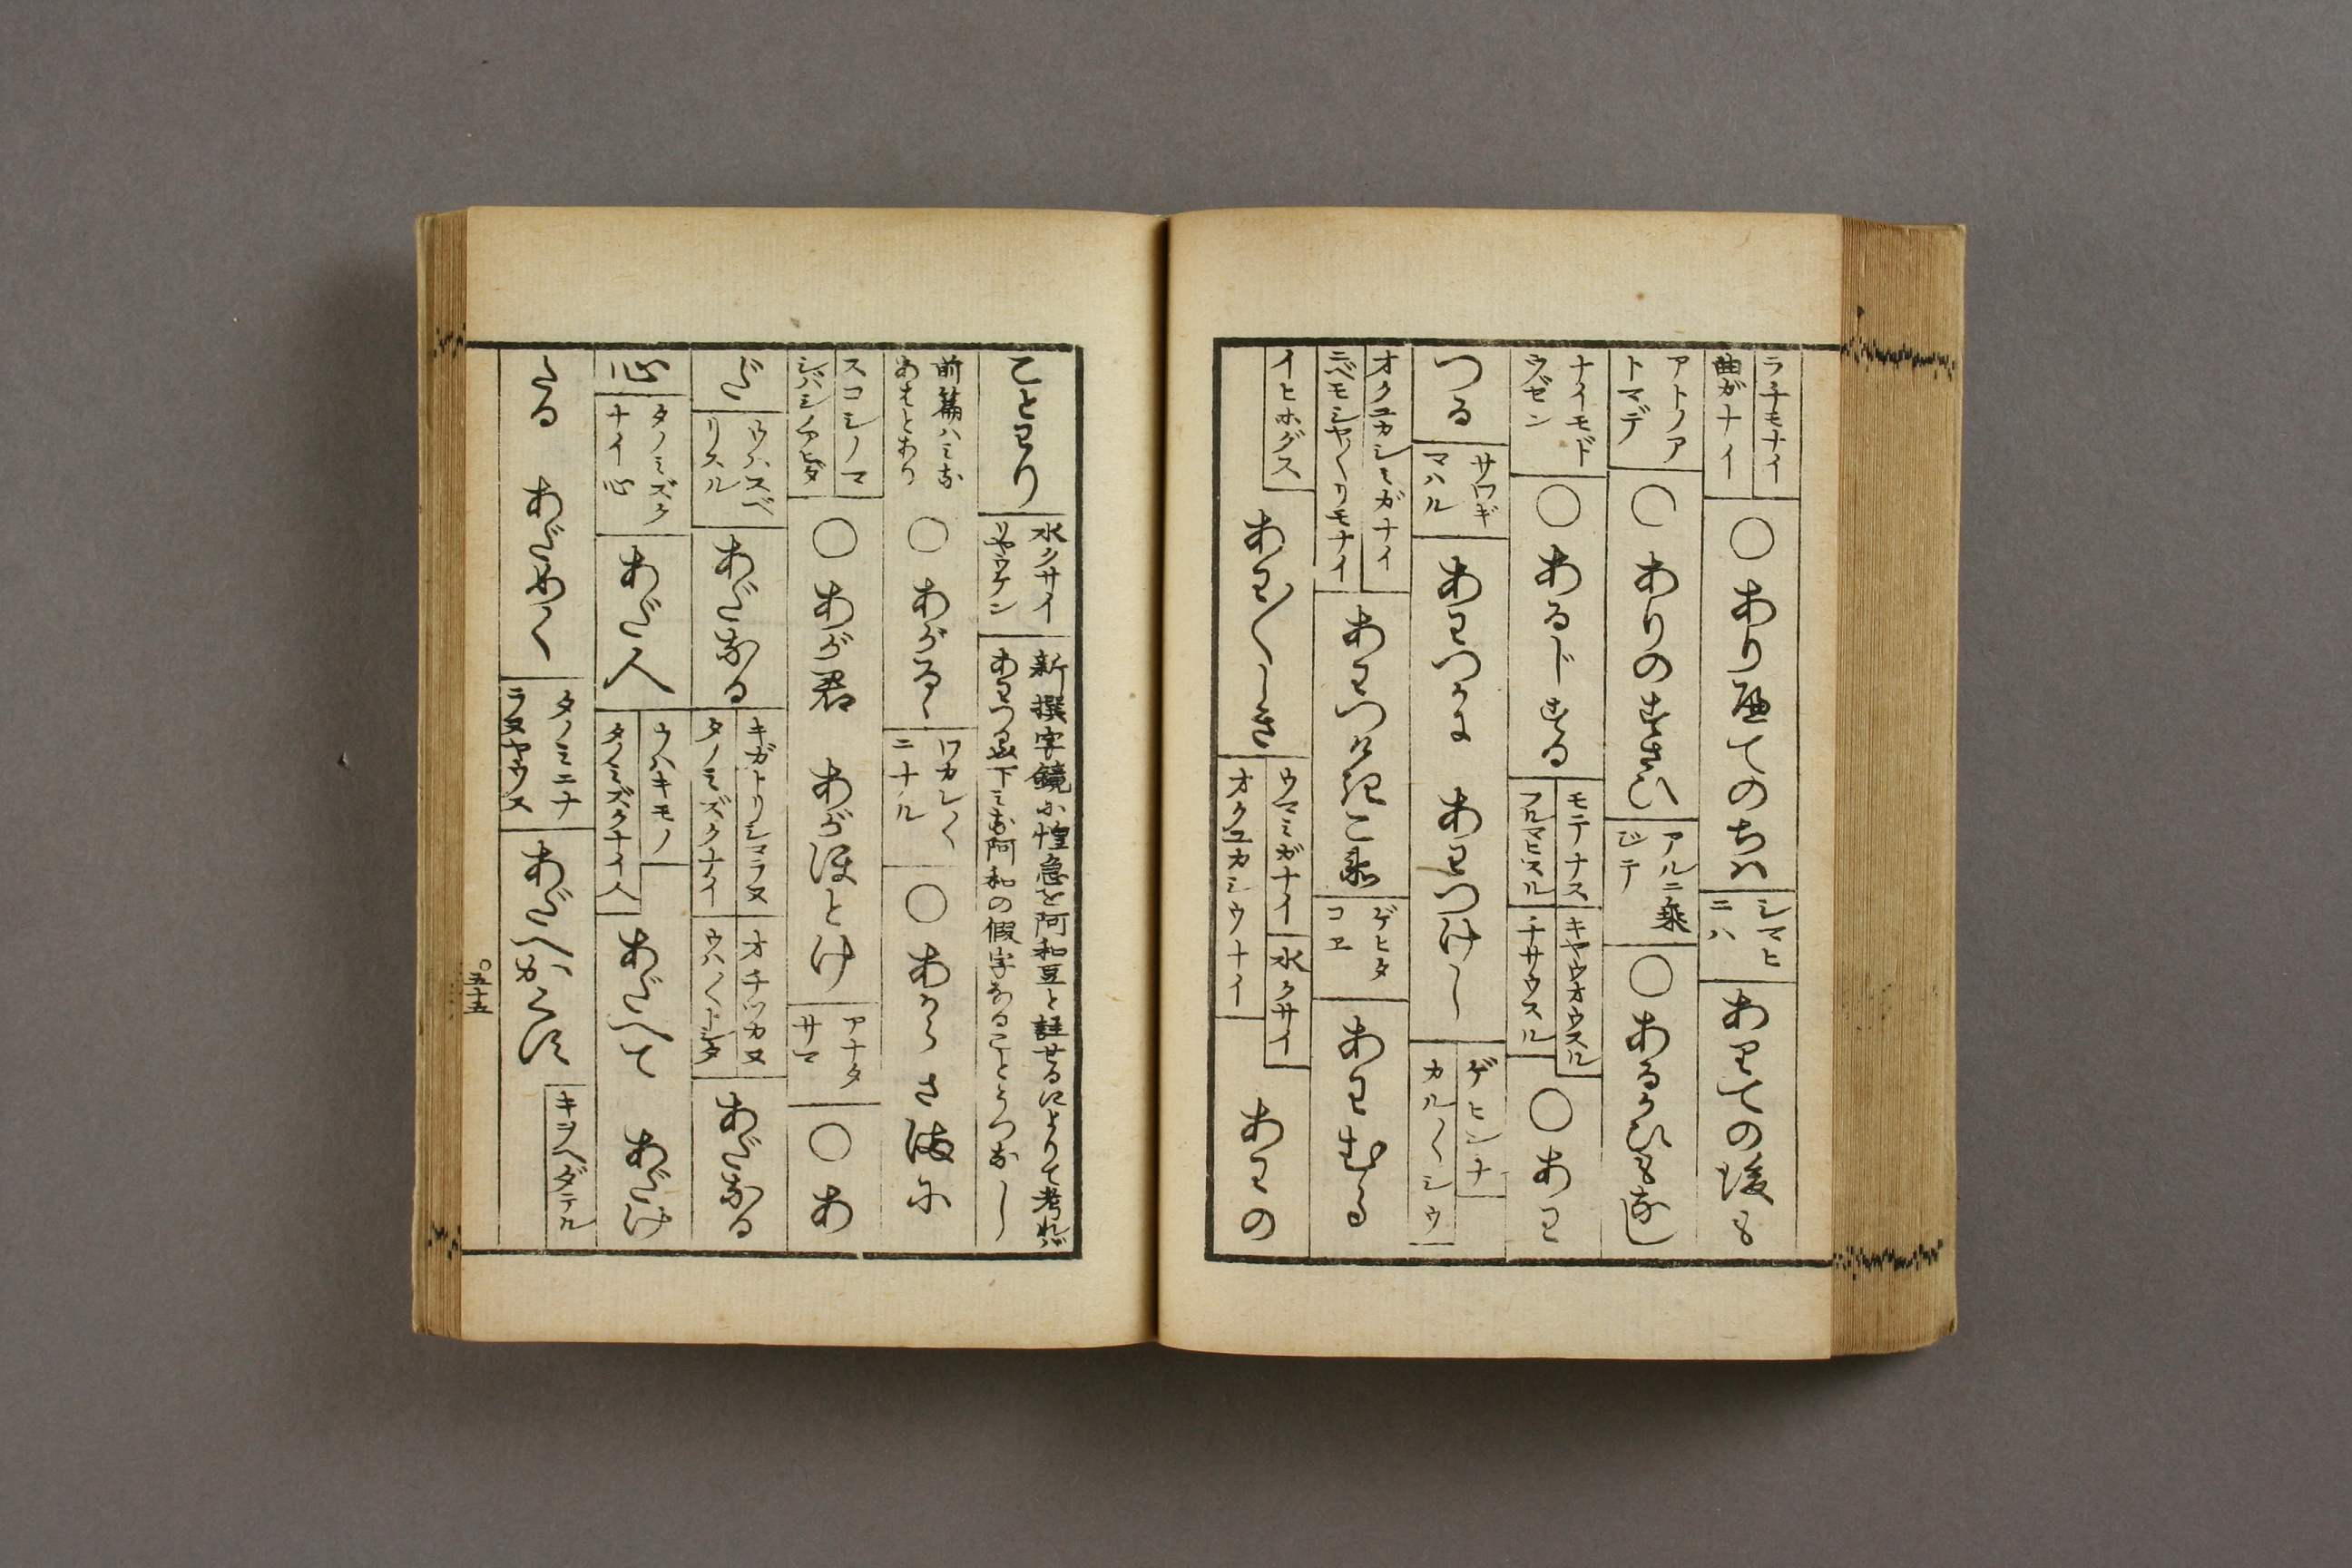 ラチモナイ
曲ガナイ
○あり歴てのちハ
シマヒ
ニハ
ありての後も
アトノア
トマデ
○ありのすさひ
アルニ乗
ジテ
○あるかひもなし
ナイモド
ウゼン
○あるじする
モテナス
フルマヒスル
キヤウオウスル
チサウスル
○あわ
つる
サワギ
マハル
あわつかに
あわつけし
ゲヒンナ
カル〳〵シウ
オクユカシミガナイ
ニベモシヤ〳〵リモナイ
あわつけきこゑ
ゲヒタ
コヱ
あわむる
イヒホグス
あわ〳〵しき
ウマミガナイ
オクユカシウナイ
水クサイ
あわの
ことわり
水クサイ
リヤウケン
新撰字鏡に惶急を阿和豆と註せるによりて考れバ
あわつる以下ミな阿和の假字なることうつなし
前篇ハミな
あはとあり
○あがる
ワカ〳〵
ニナル
○あからさまに
スコシノマ
シバシノアヒダ
○あが君
あがほとけ
アナタ
サマ
○あ
だ
ウハスベ
リスル
あだなる
キガトリシマラヌ
タノミズクナイ
オチツカヌ
ウハ〳〵トシタ
あだなる
心
タノミズク
ナイ心
あだ人
ウハキモノ
タノミズクナイ人
あだへて
あだけ
たる
あだめく
タノミニナ
ラヌヤウス
あだへかくす
キヲヘダテル
○五十五